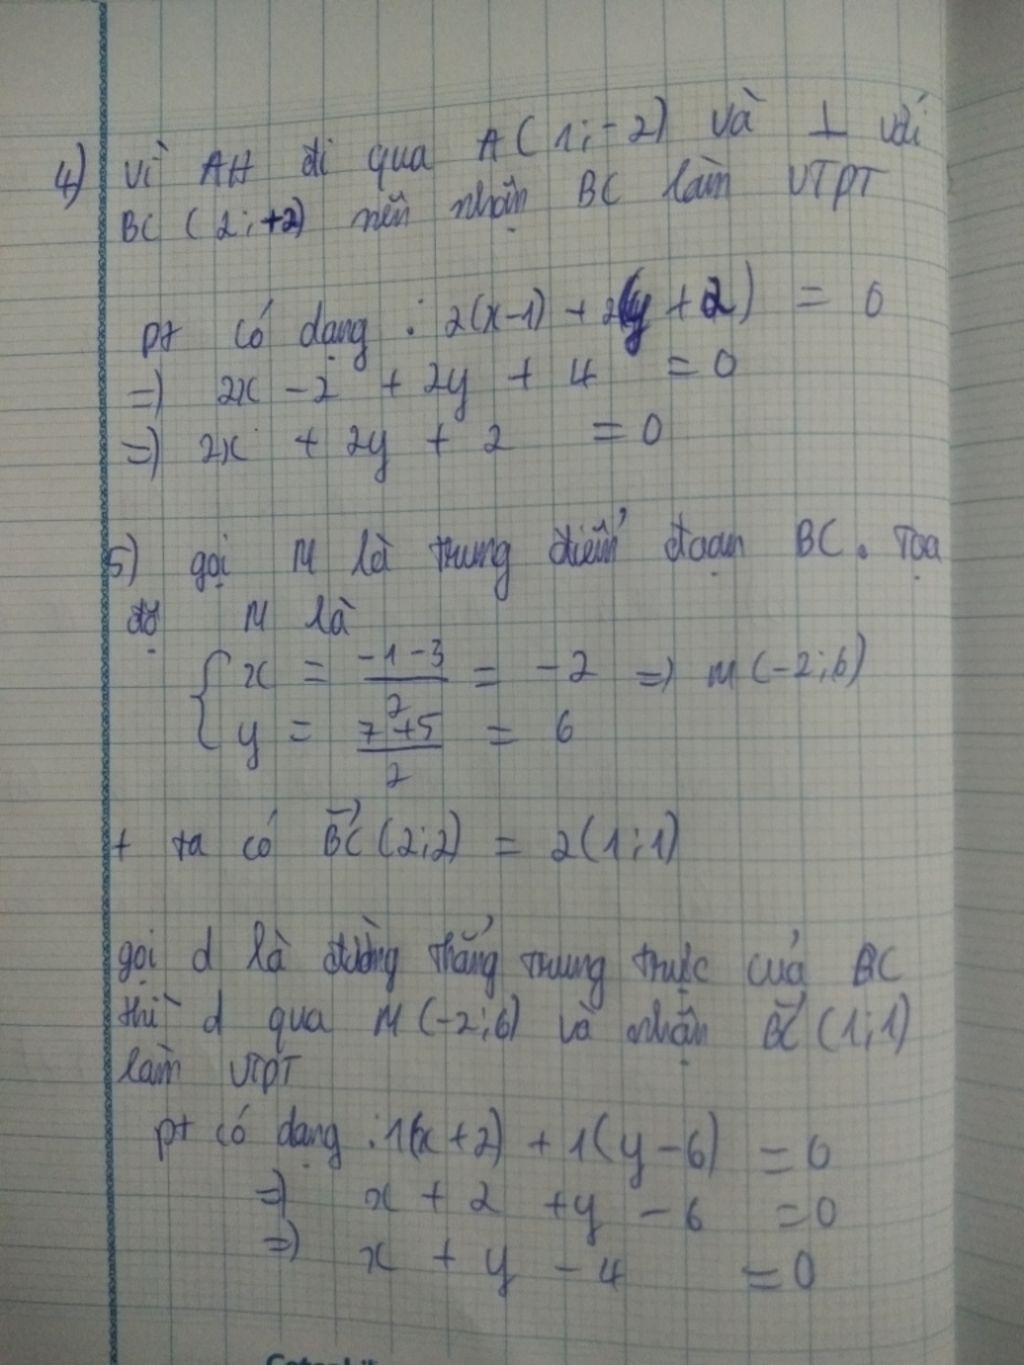 4) Vì AH đi qua A(1;-2) và ⊥ với
BC (2;+2) nên nhận BC làm VTPT
pt có dạng : 2(x-1) + 2(y + 2) = 0
=) 2x - 2 + 2y + 4 = 0
=) 2x + 2y + 2 = 0
5) gọi M là trung điểm đoạn BC. Tọa
độ M là
{ x = (-1-3)/2 = -2 =) M(-2;6)
{ y = (7+5)/2 = 6
+ ta có →BC (2;2) = 2(1;1)
gọi d là đường thẳng trung trực của BC
thì d qua M(-2;6) và nhận →BC (1;1)
làm VTPT
pt có dạng : 1(x+2) + 1(y-6) = 0
=) x + 2 + y - 6 = 0
=) x + y - 4 = 0